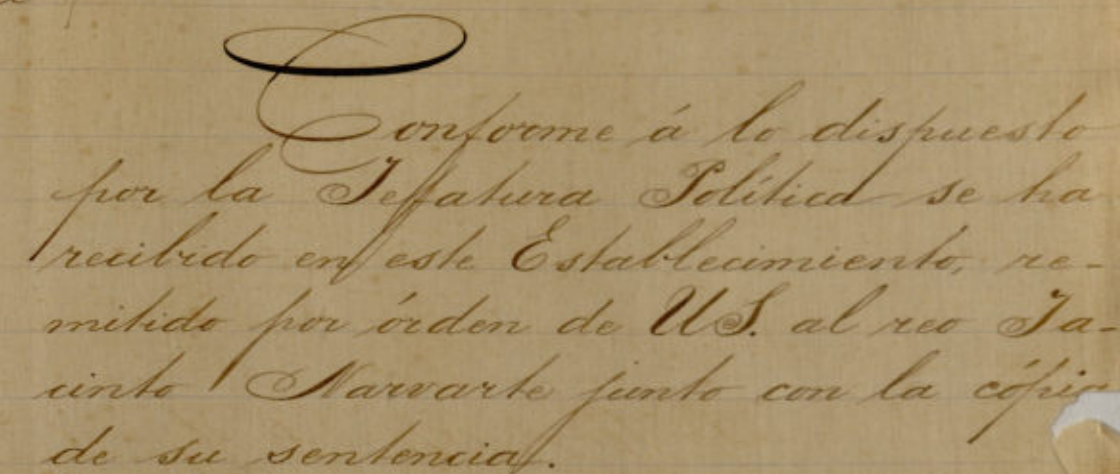 Conforme á lo dispuesto
por la Jefatura Política se ha
recibido en este Establecimiento, re-
mitido por órden de US. al reo Ja-
cinto Narvarte junto con la cópia
de su sentencia.